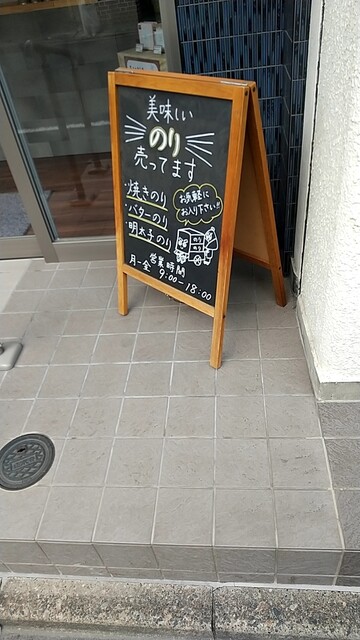 美味しい
のり
売ってます
・焼きのり
・バターのり
・明太子のり
お気軽に
お入り下さい!!
のり
のり
営業時間
月-金 9:00-18:00